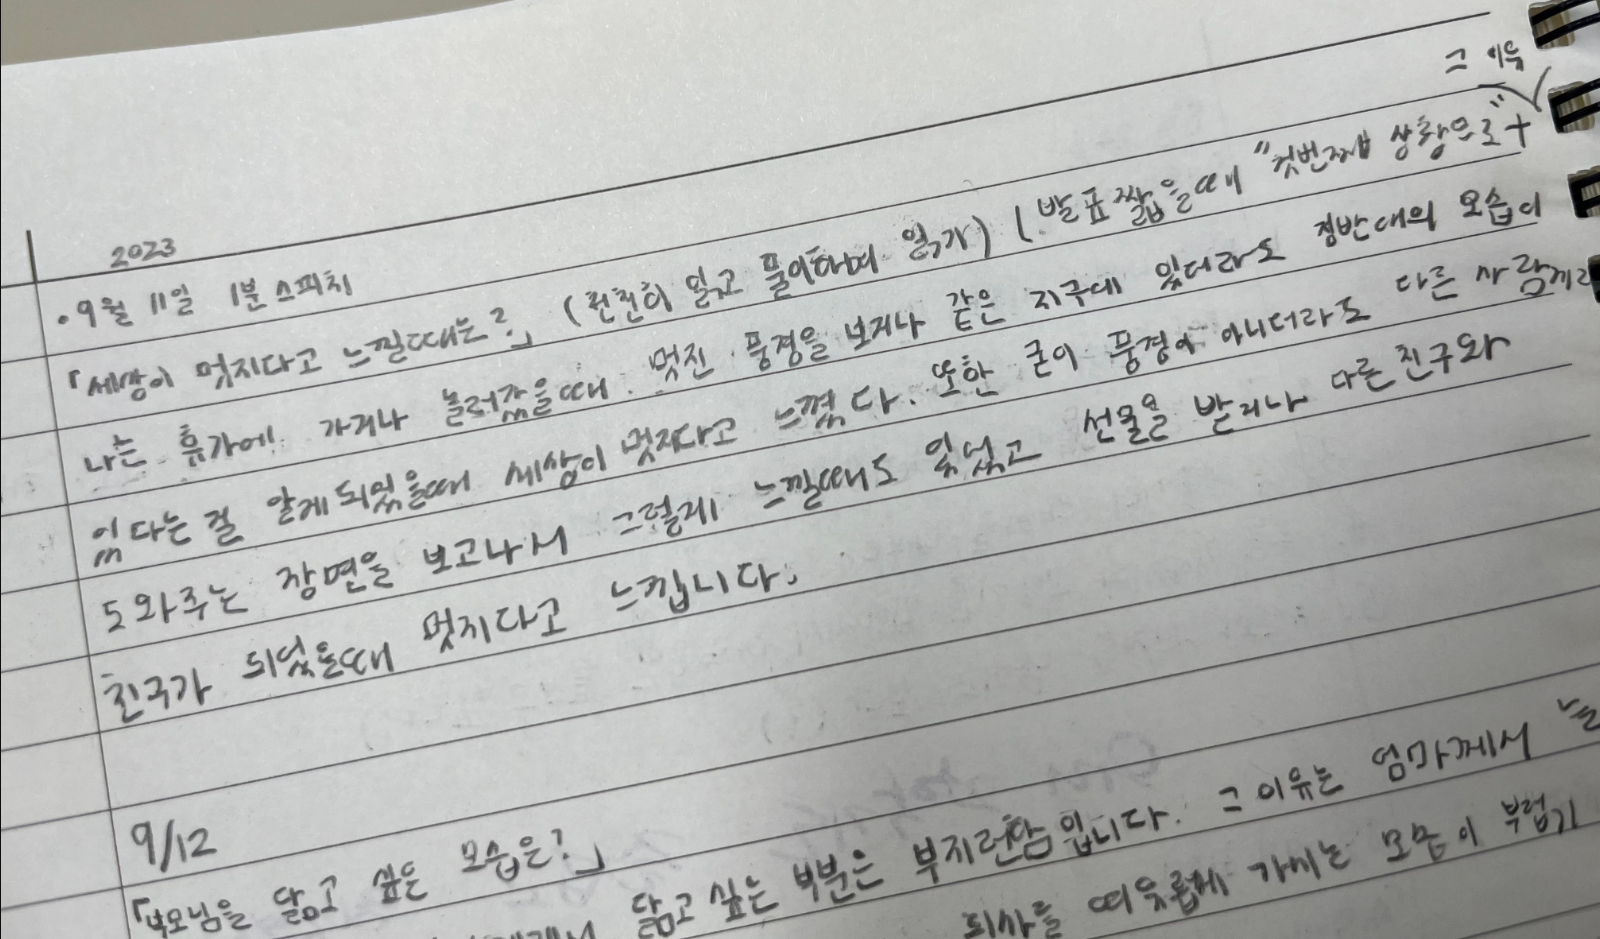 그 이유
2023
· 9월 11일 1분 스피치
「세상이 멋지다고 느낄때는?」 (천천히 읽고 풀이하며 읽기) (발표 짧을때 "첫번째 상황으로" +
나는 휴가에 가거나 놀러갔을때 멋진 풍경을 보거나 같은 지구에 있더라도 정반대의 모습이
있다는걸 알게되었을때 세상이 멋지다고 느꼈다. 또한 굳이 풍경이 아니더라도 다른 사람에게
도와주는 장면을 보고나서 그렇게 느낄때도 있었고 선물을 받거나 다른친구와
친구가 되었을때 멋지다고 느낍니다.
9/12
「부모님을 닮고 싶은 모습은?」
닮고싶은 부분은 부지런함입니다. 그 이유는 엄마께서 늘
회사를 가시는 모습이 부럽기